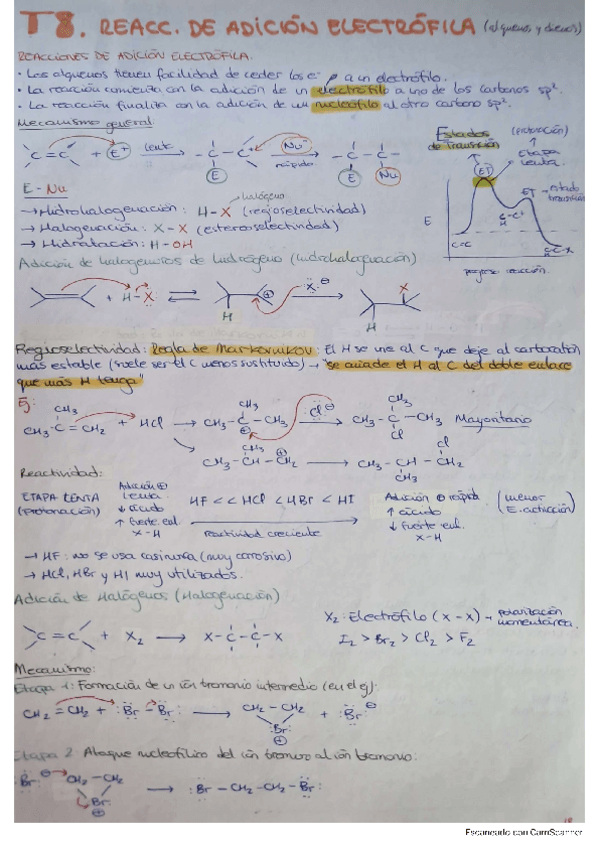 T8. REACC. DE ADICIÓN ELECTRÓFILA (alquenos y dienos)
REACCIONES DE ADICIÓN ELECTRÓFILA.
· Los alquenos tienen facilidad de ceder los e⁻ a un electrófilo.
· La reacción comienza con la adición de un electrófilo a uno de los carbonos sp².
· La reacción finaliza con la adición de un nucleófilo al otro carbono sp².
Mecanismo general:
C=C + E⁺ lenta → -C-C⊕ E Nu⁻ rápido → -C-C- E Nu
Estados de Transición
(protonación)
Etapa lenta.
ET
ET → estado transición
E
C=C
C-C⁺
H
C-C-X
progreso reacción.
E-Nu
halógeno
→ Hidrohalogenación: H-X (regioselectividad)
→ Halogenación: X-X (estereoselectividad)
→ Hidratación: H-OH
Adición de halogenuros de hidrógeno (hidrohalogenación)
+ H-X ⇌ H ⊕ :X:⊖ → H X
Regioselectividad: Regla de Markovnikov: El H se une al C que deje al carbocatión
más estable (suele ser el C menos sustituido) → "se añade el H al C del doble enlace
que más H tenga
Ej:
CH₃
CH₃-C=CH₂ + HCl → CH₃-C-CH₃ ⊕ :Cl:⊖ → CH₃-C-CH₃ Cl Mayoritario
CH₃-CH-CH₂ ⊕ → CH₃-CH-CH₂ Cl
Reactividad:
ETAPA LENTA (Protonación)
Adición ⊕ lenta
↓ ácido
↑ fuerte enl.
X-H
HF << HCl < HBr < HI
reactividad creciente
Adición ⊕ rápida
↑ ácido
↓ fuerte enl.
X-H
(menor E. activación)
→ HF: no se usa casi nunca (muy corrosivo)
→ HCl, HBr y HI muy utilizados.
Adición de Halógenos (Halogenación)
C=C + X₂ → X-C-C-X
X₂: Electrófilo (X-X) → polarización momentánea.
I₂ > Br₂ > Cl₂ > F₂
Mecanismo:
Etapa 1: Formación de un ión bromonio intermedio (en el ej):
CH₂=CH₂ + :Br-Br: → CH₂-CH₂ Br ⊕ + :Br:⊖
Etapa 2: Ataque nucleofílico del ión bromuro al ión bromonio:
:Br:⊖ CH₂-CH₂ Br ⊕ → :Br-CH₂-CH₂-Br:
18
Escaneado con CamScanner